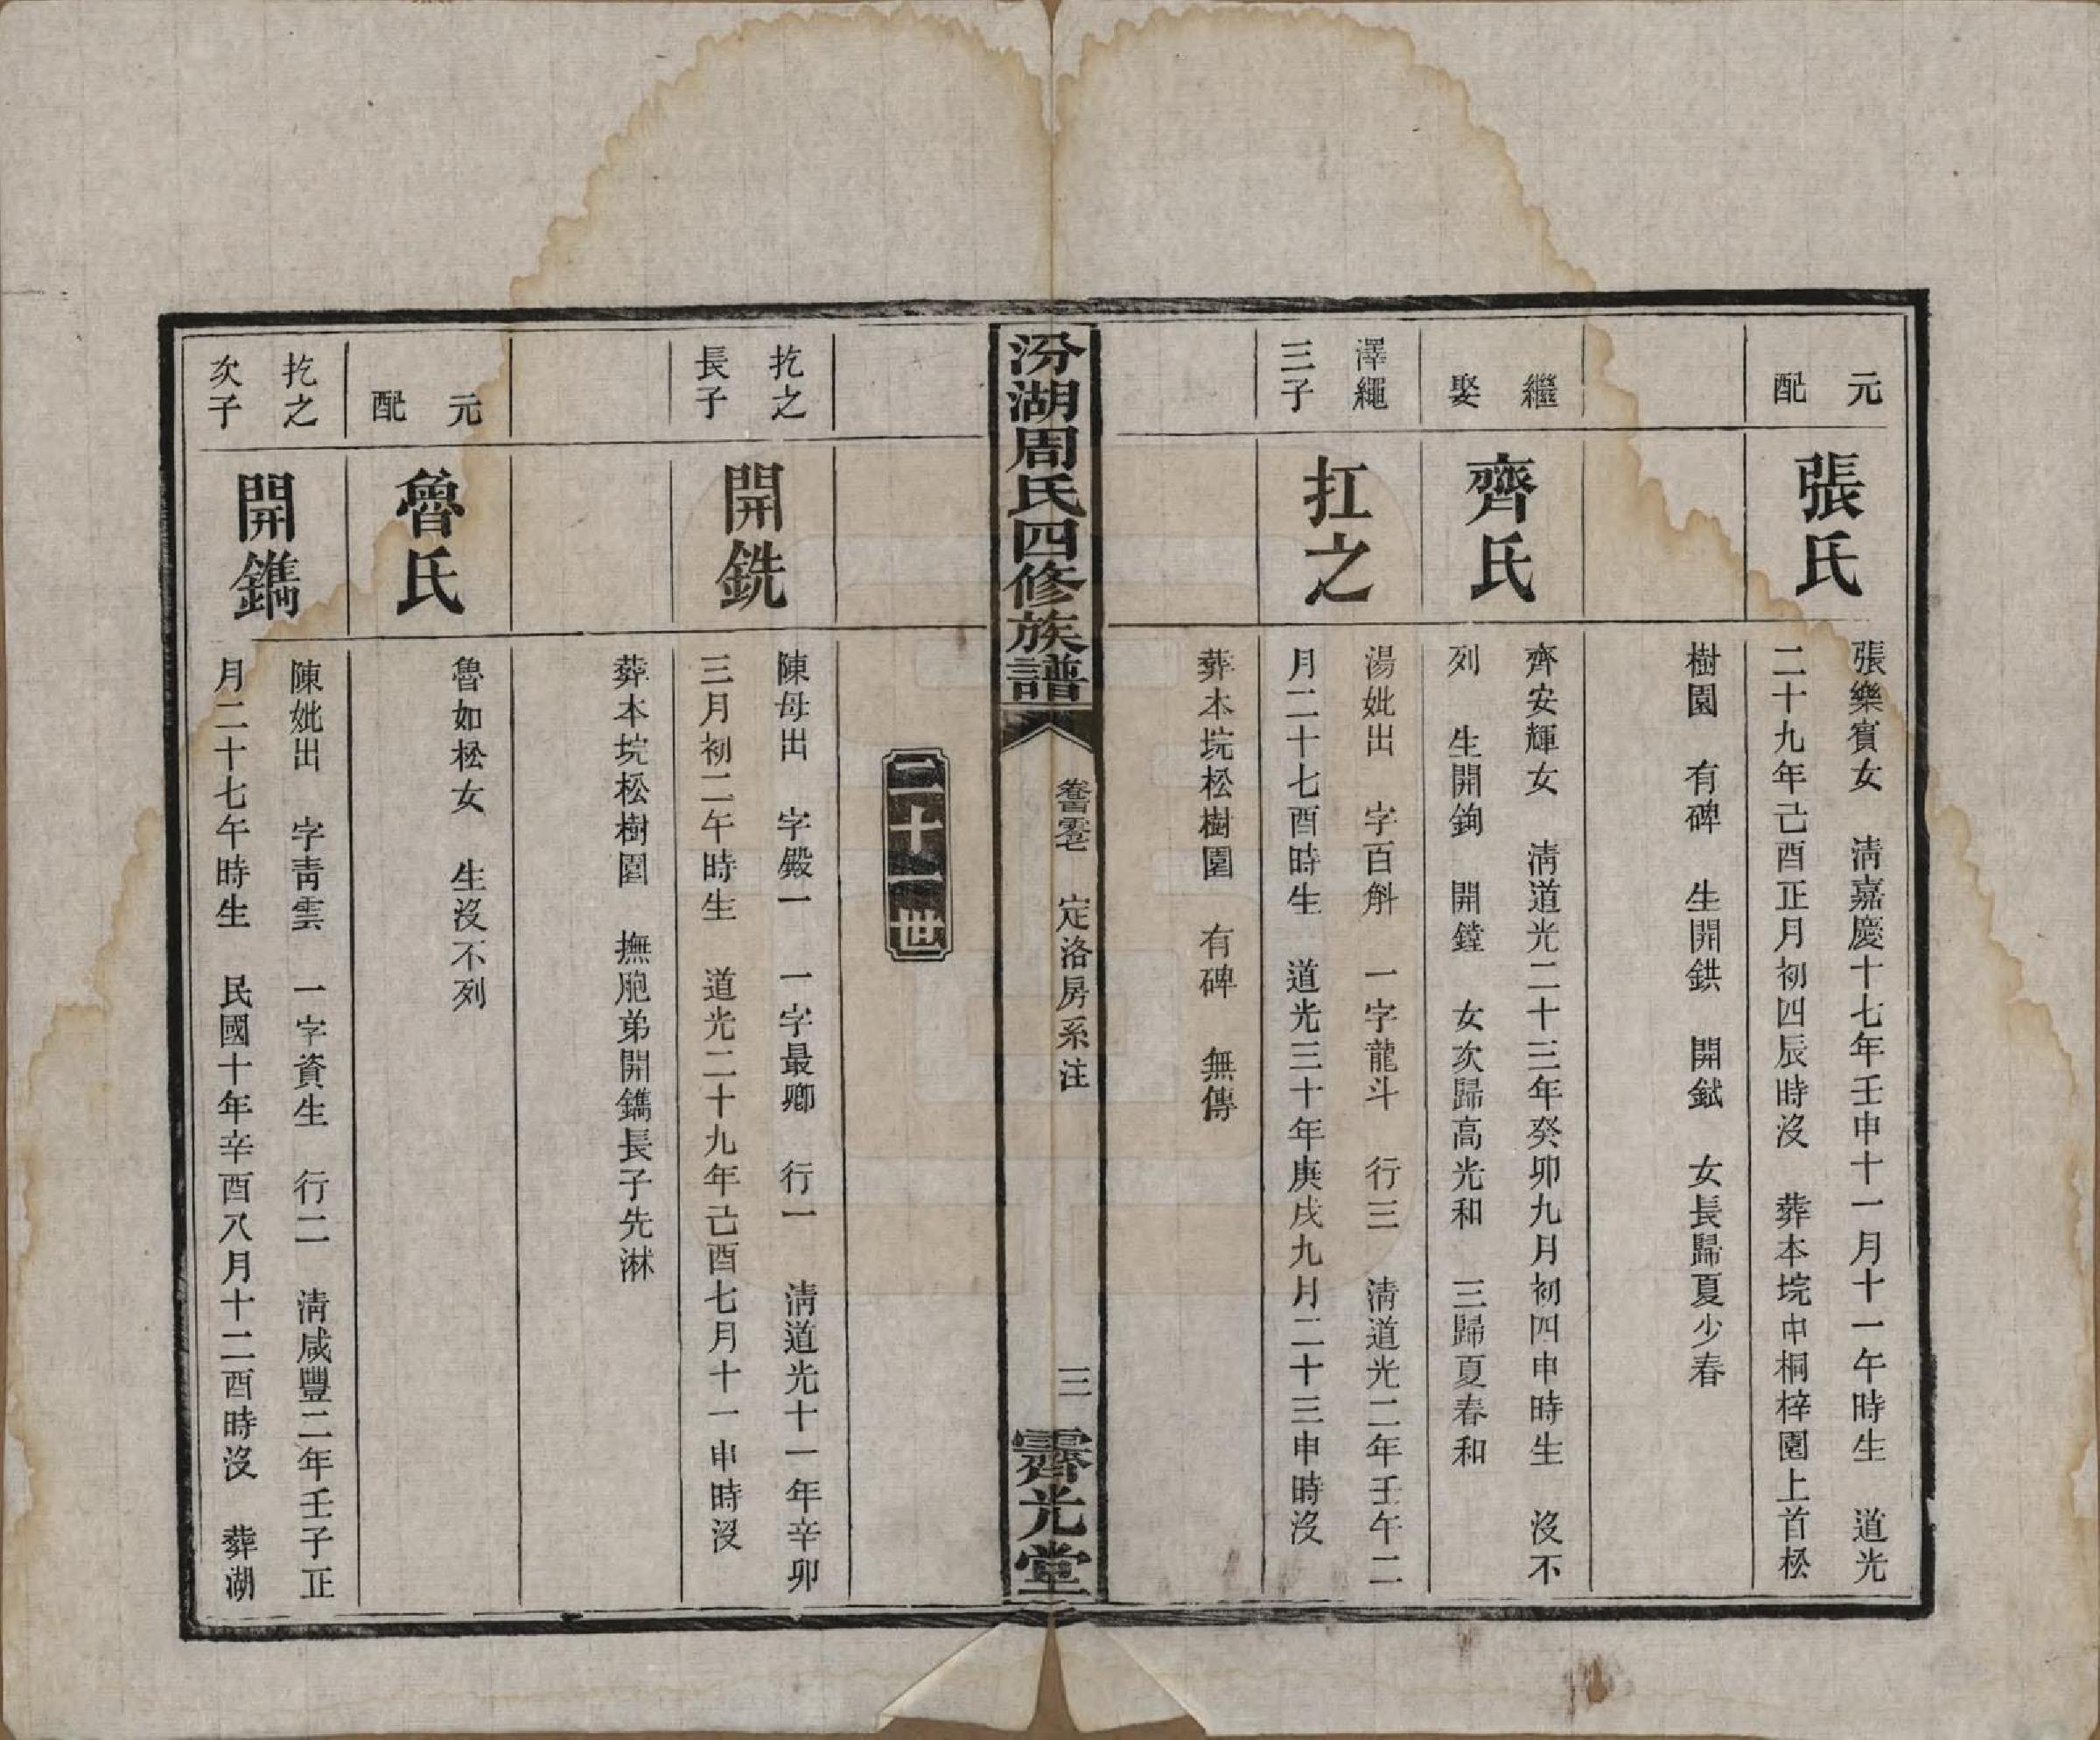 元配
張氏
張樂賓女　清嘉慶十七年壬申十一月十一午時生　道光
二十九年己酉正月初四辰時沒　葬本垸中桐梓園上首松
樹園　有碑　生開鉷　開鉽　女長歸夏少春
繼娶
齊氏
齊安輝女　清道光二十三年癸卯九月初四申時生　沒不
列　生開鉤　開鏜　女次歸高光和　三歸夏春和
澤繩三子
扛之
湯妣出　字百斛　一字龍斗　行三　清道光二年壬午二
月二十七酉時生　道光三十年庚戌九月二十三申時沒
葬本垸松樹園　有碑　無傳
汾湖周氏四修族譜
定洛房系注
三
霽光堂
二十一世
扢之長子
開銑
陳母出　字殿一　一字最卿　行一　清道光十一年辛卯
三月初二午時生　道光二十九年己酉七月十一申時沒
葬本垸松樹園　撫胞弟開鐫長子先淋
元配
魯氏
魯如松女　生沒不列
扢之次子
開鐫
陳妣出　字靑雲　一字資生　行二　清咸豐二年壬子正
月二十七午時生　民國十年辛酉八月十二酉時沒　葬湖